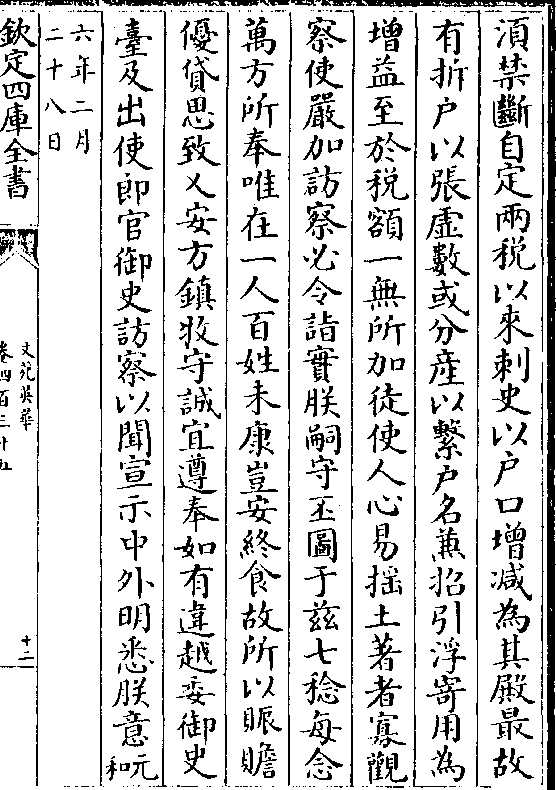 湏禁斷自定兩税以來刺史以户口增减為其殿最故
有折户以張虛數或分産以繫户名兼招引浮寄用為
增益至於税額一無所加徒使人心易摇土著者寡觀
察使嚴加訪察必令詣實朕嗣守丕圖于兹七稔每念
萬方所奉唯在一人百姓未康豈安終食故所以賑贍
優貸思致乂安方鎮牧守誠宜遵奉如有違越委御史
臺及出使郎官御史訪察以聞宣示中外明悉朕意元和
六年二月
二十八日
欽定四庫全書
文苑英華
卷四百三十五
十二